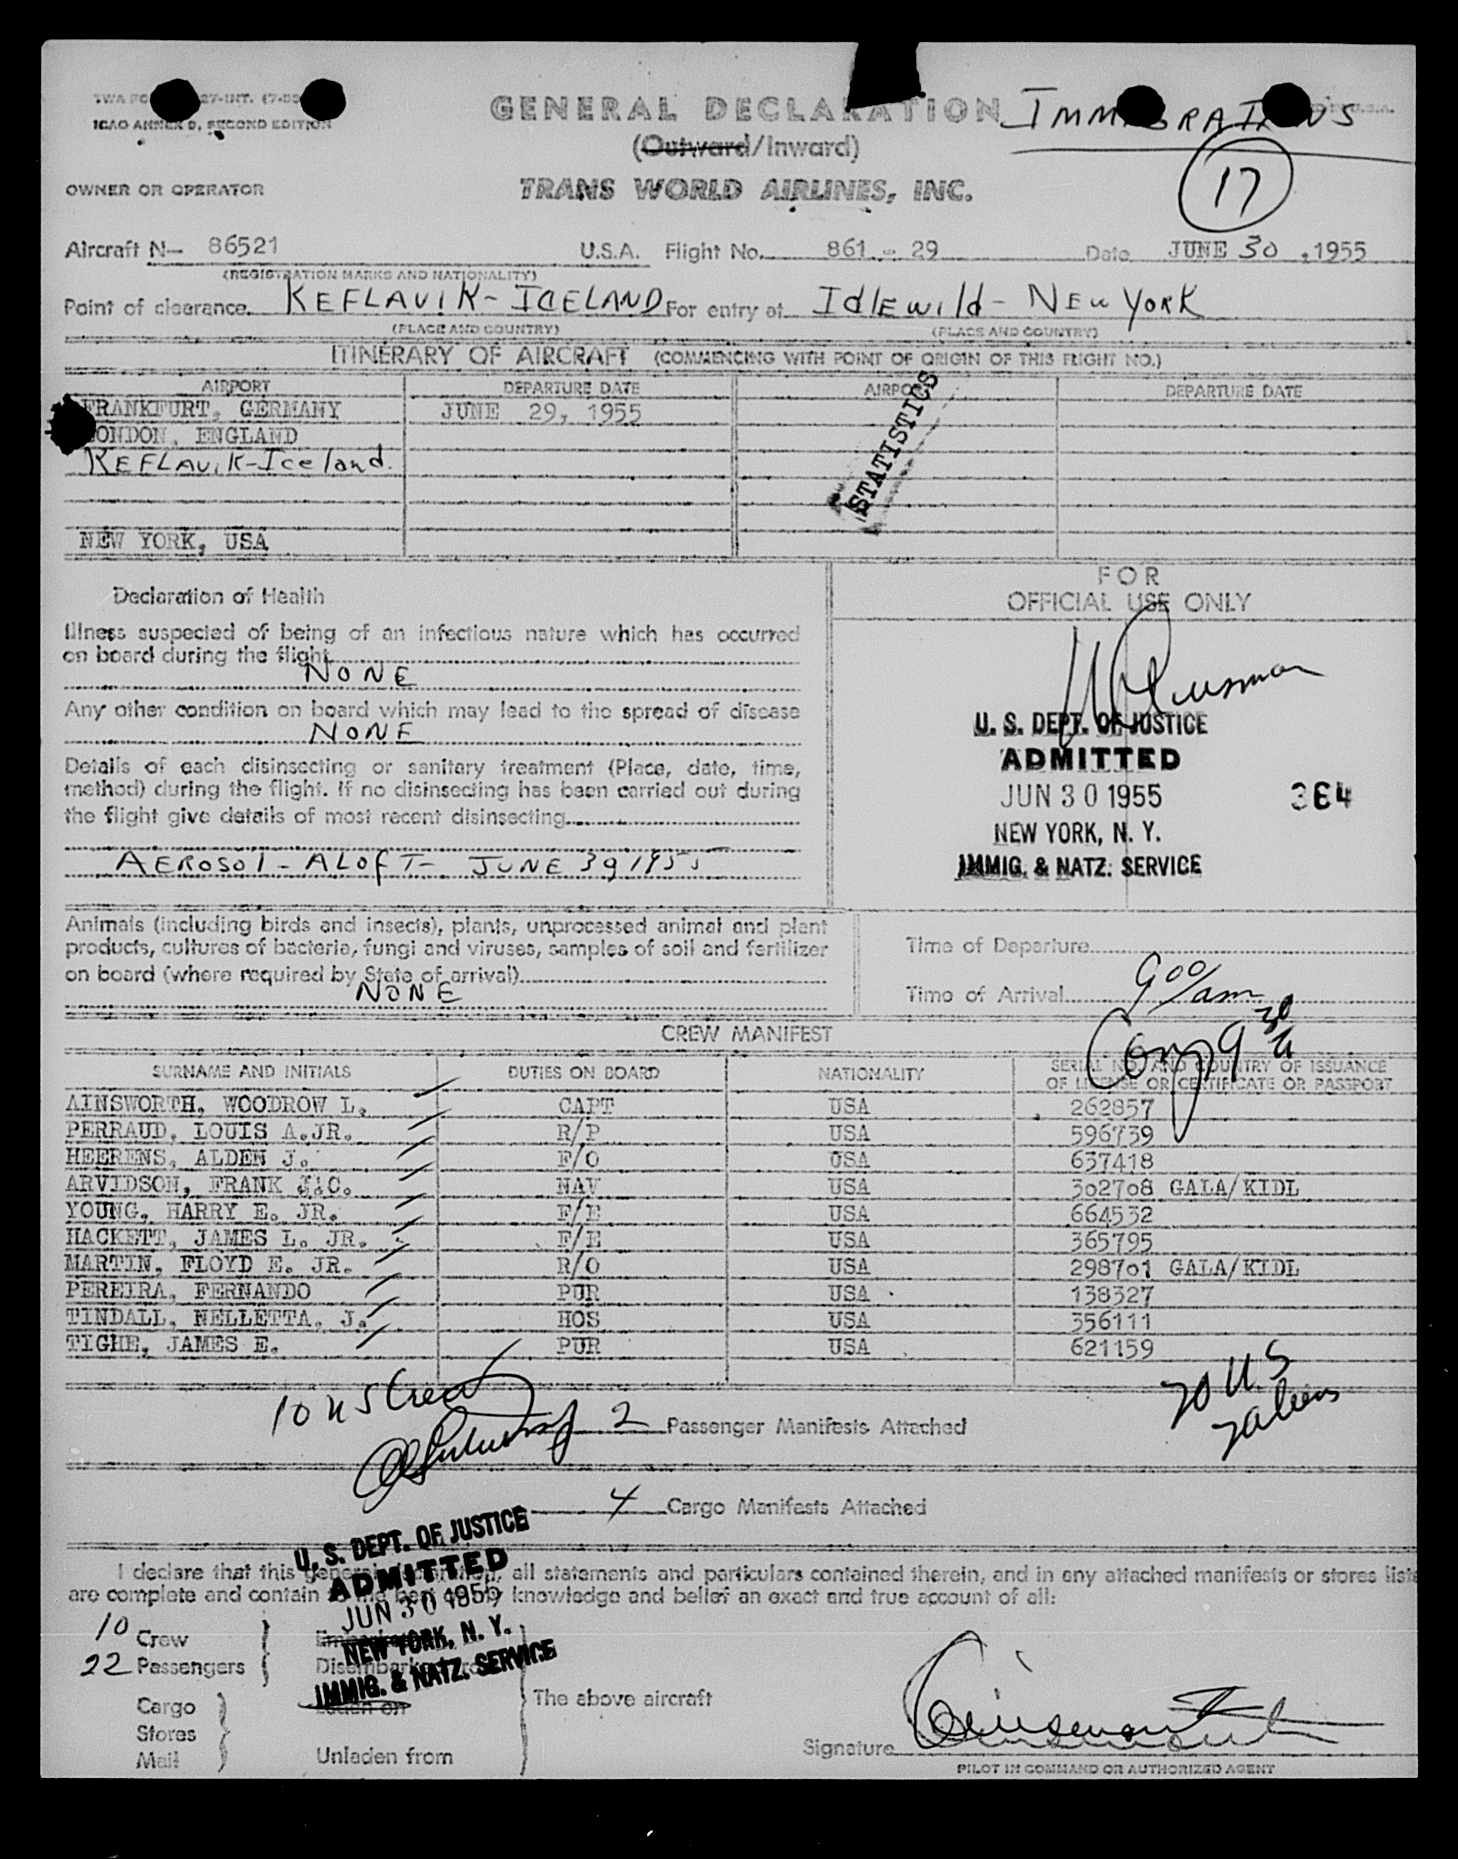 GENERAL DECLARATION
IMMIGRATIONS
ICAO ANNEX 9, SECOND EDITION
(Outward/Inward)
17
OWNER OR OPERATOR TRANS WORLD AIRLINES, INC.
Aircraft N— 86521 U.S.A. Flight No. 861 - 29 Date JUNE 30, 1955
(REGISTRATION MARKS AND NATIONALITY)
Point of clearance KEFLAVIK - ICELAND For entry at IdlEwild - NEw YorK
(PLACE AND COUNTRY) (PLACE AND COUNTRY)
ITINERARY OF AIRCRAFT (COMMENCING WITH POINT OF ORIGIN OF THIS FLIGHT NO.)
AIRPORT DEPARTURE DATE AIRPORT DEPARTURE DATE
FRANKFURT, GERMANY JUNE 29, 1955
LONDON, ENGLAND
KEFLAVIK-Iceland
STATISTICS
NEW YORK, USA
FOR
OFFICIAL USE ONLY
Declaration of Health
Illness suspected of being of an infectious nature which has occurred
on board during the flight
NONE
Any other condition on board which may lead to the spread of disease
NONE
Details of each disinsecting or sanitary treatment (Place, date, time,
method) during the flight. If no disinsecting has been carried out during
the flight give details of most recent disinsecting
AEROSOL - ALOFT - JUNE 30 1955
U. S. DEPT. OF JUSTICE
ADMITTED
JUN 30 1955 364
NEW YORK, N. Y.
IMMIG. & NATZ. SERVICE
Animals (including birds and insects), plants, unprocessed animal and plant
products, cultures of bacteria, fungi and viruses, samples of soil and fertilizer
on board (where required by State of arrival)
NONE
Time of Departure
Time of Arrival 900/am
CREW MANIFEST
SURNAME AND INITIALS DUTIES ON BOARD NATIONALITY SERIAL NO. AND COUNTRY OF ISSUANCE
OF LICENSE OR CERTIFICATE OR PASSPORT
AINSWORTH, WOODROW L. CAPT USA 262857
PERRAUD, LOUIS A.JR. R/P USA 596739
HEERENS, ALDEN J. F/O USA 637418
ARVIDSON, FRANK J.C. NAV USA 302708 GALA/KIDL
YOUNG, HARRY E. JR. F/E USA 664532
HACKETT, JAMES L. JR. F/E USA 365795
MARTIN, FLOYD E. JR. R/O USA 298701 GALA/KIDL
PEREIRA, FERNANDO PUR USA 138327
TINDALL, NELLETTA, J. HOS USA 356111
TIGHE, JAMES E. PUR USA 621159
10 US Crew
20 U.S
2 aliens
2 Passenger Manifests Attached
4 Cargo Manifests Attached
U. S. DEPT. OF JUSTICE
ADMITTED
JUN 30 1955
NEW YORK, N. Y.
IMMIG. & NATZ. SERVICE
I declare that this general all statements and particulars contained therein, and in any attached manifests or stores lists
are complete and contain to the best of my knowledge and belief an exact and true account of all:
10 Crew
22 Passengers
Cargo
Stores
Mail
Unladen from
The above aircraft
Signature
PILOT IN COMMAND OR AUTHORIZED AGENT